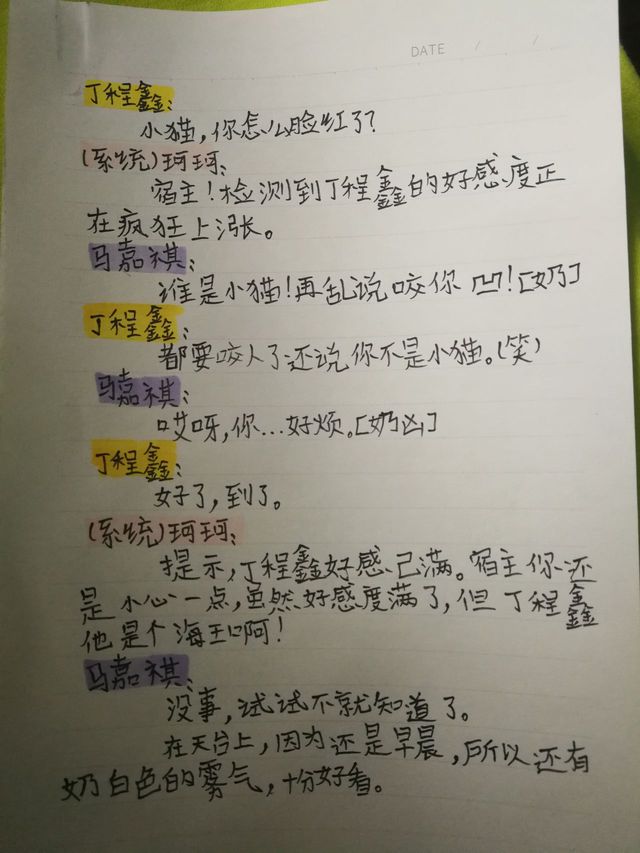 DATE / /
丁程鑫:
小猫,你怎么脸红了?
(系统)珂珂:
宿主!检测到丁程鑫的好感度正
在疯狂上涨。
马嘉祺:
谁是小猫!再乱说咬你 凹![奶]
丁程鑫:
都要咬人了还说你不是小猫。(笑)
马嘉祺:
哎呀,你...好烦。[奶凶]
丁程鑫:
好了,到了。
(系统)珂珂:
提示,丁程鑫好感已满。宿主你还
是小心一点,虽然好感度满了,但丁程鑫
他是个海王啊!
马嘉祺:
没事,试试不就知道了。
在天台上,因为还是早晨,所以还有
奶白色的雾气,十分好看。